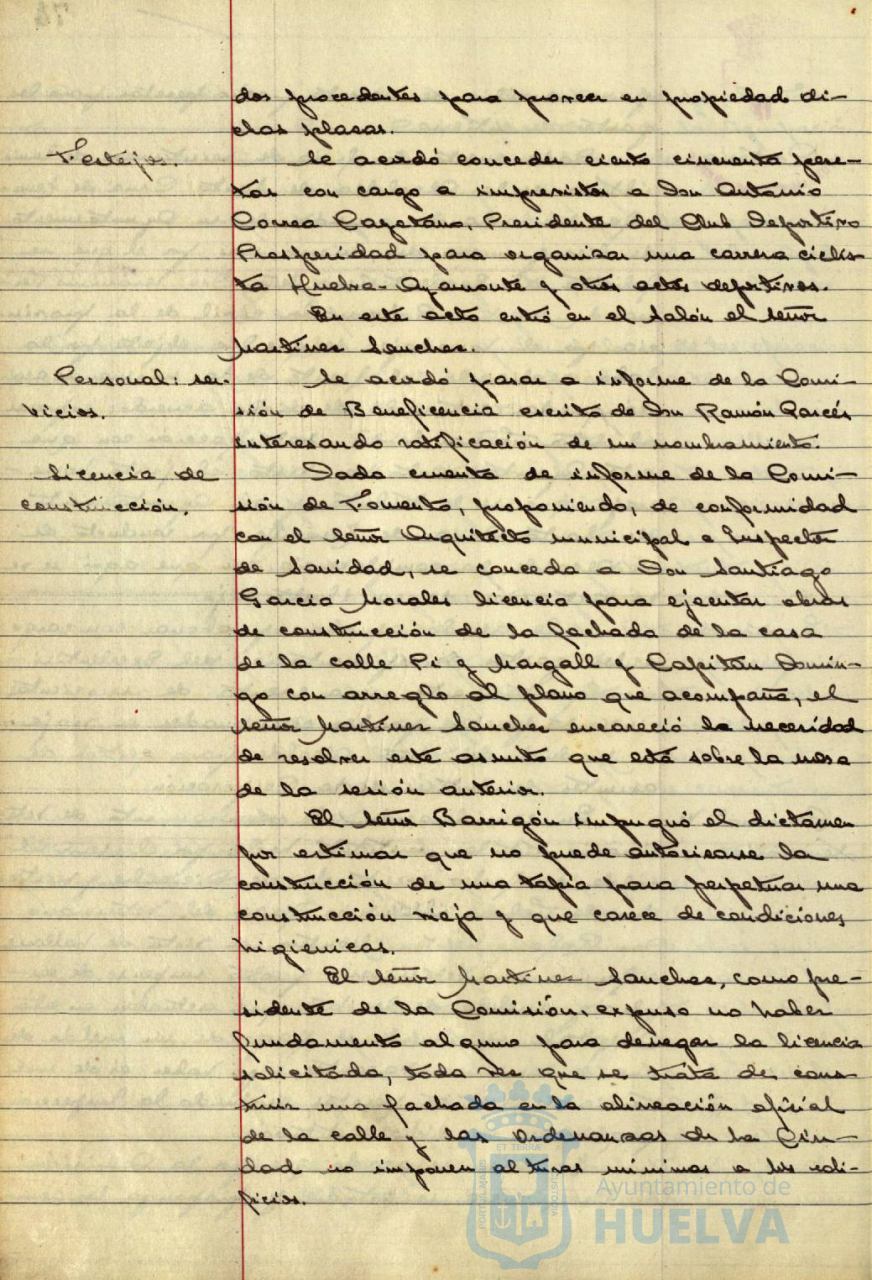 dos procedentes para proveer en propiedad di-
chas plazas.
Festejos.
Se acordó conceder ciento cincuenta pese-
tas con cargo a imprevistos a Don Antonio
Correa Cayetano, Presidente del Club Deportivo
Prosperidad para organizar una carrera ciclis-
ta Huelva-Ayamonte y otros actos deportivos.
En este acto entró en el salón el señor
Martinez Sanchez.
Personal: ser-
vicios.
Se acordó pasar a informe de la Comi-
sión de Beneficencia escrito de Don Ramón Garcés
interesando ratificación de un nombramiento.
Licencia de
construcción.
Dada cuenta de informe de la Comi-
sión de Fomento, proponiendo, de conformidad
con el señor Arquitecto municipal e Inspector
de Sanidad, se conceda a Don Santiago
Garcia Morales licencia para ejecutar obras
de construcción de la fachada de la casa
de la calle Pi y Margall y Capitán Domin-
go con arreglo al plano que acompaña, el
señor Martinez Sanchez encareció la necesidad
de resolver este asunto que está sobre la mesa
de la sesión anterior.
El señor Barrigón impugnó el dictámen
por estimar que no puede autorizarse la
construcción de una tapia para perpetuar una
construcción vieja y que carece de condiciones
higienicas.
El señor Martinez Sanchez, como pre-
sidente de la Comisión, expuso no haber
fundamento alguno para denegar la licencia
solicitada, toda vez que se trata de cons-
truir una fachada en la alineación oficial
de la calle y las Ordenanzas de la Ciu-
dad no imponen alturas minimas a los edi-
ficios.
Ayuntamiento de
HUELVA